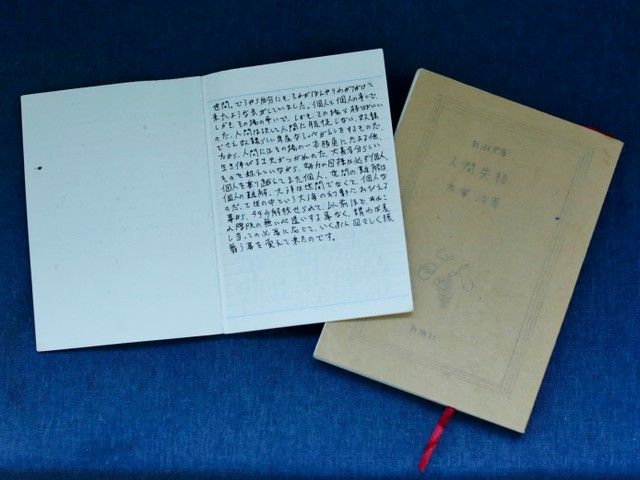 世間。どうやら自分にも、それがぼんやりわかりかけて
来たような気がしていました。個人と個人の争いで、
しかも、その場の争いで、しかも、その場で勝てばいい
のだ、人間は決して人間に服従しない、奴隷
でさえ奴隷らしい卑屈なシッペがえしをするものだ、
だから、人間にはその場の一本勝負にたよる他、
生き伸びる工夫がつかぬのだ、大義名分らしい
ものを称えていながら、努力の目標は必ず個人、
個人を乗り越えてまた個人、世間の難解は、
個人の難解、大洋は世間でなくて、個人な
のだ、と世の中という大海の幻影におびえる
事から、多少解放せられて、以前ほど、あれこ
れと際限の無い心遣いする事なく、謂わば差
し当っての必要に応じて、いくぶん図々しく振
舞う事を覚えて来たのです。
新潮文庫
人間失格
太宰治著
新潮社